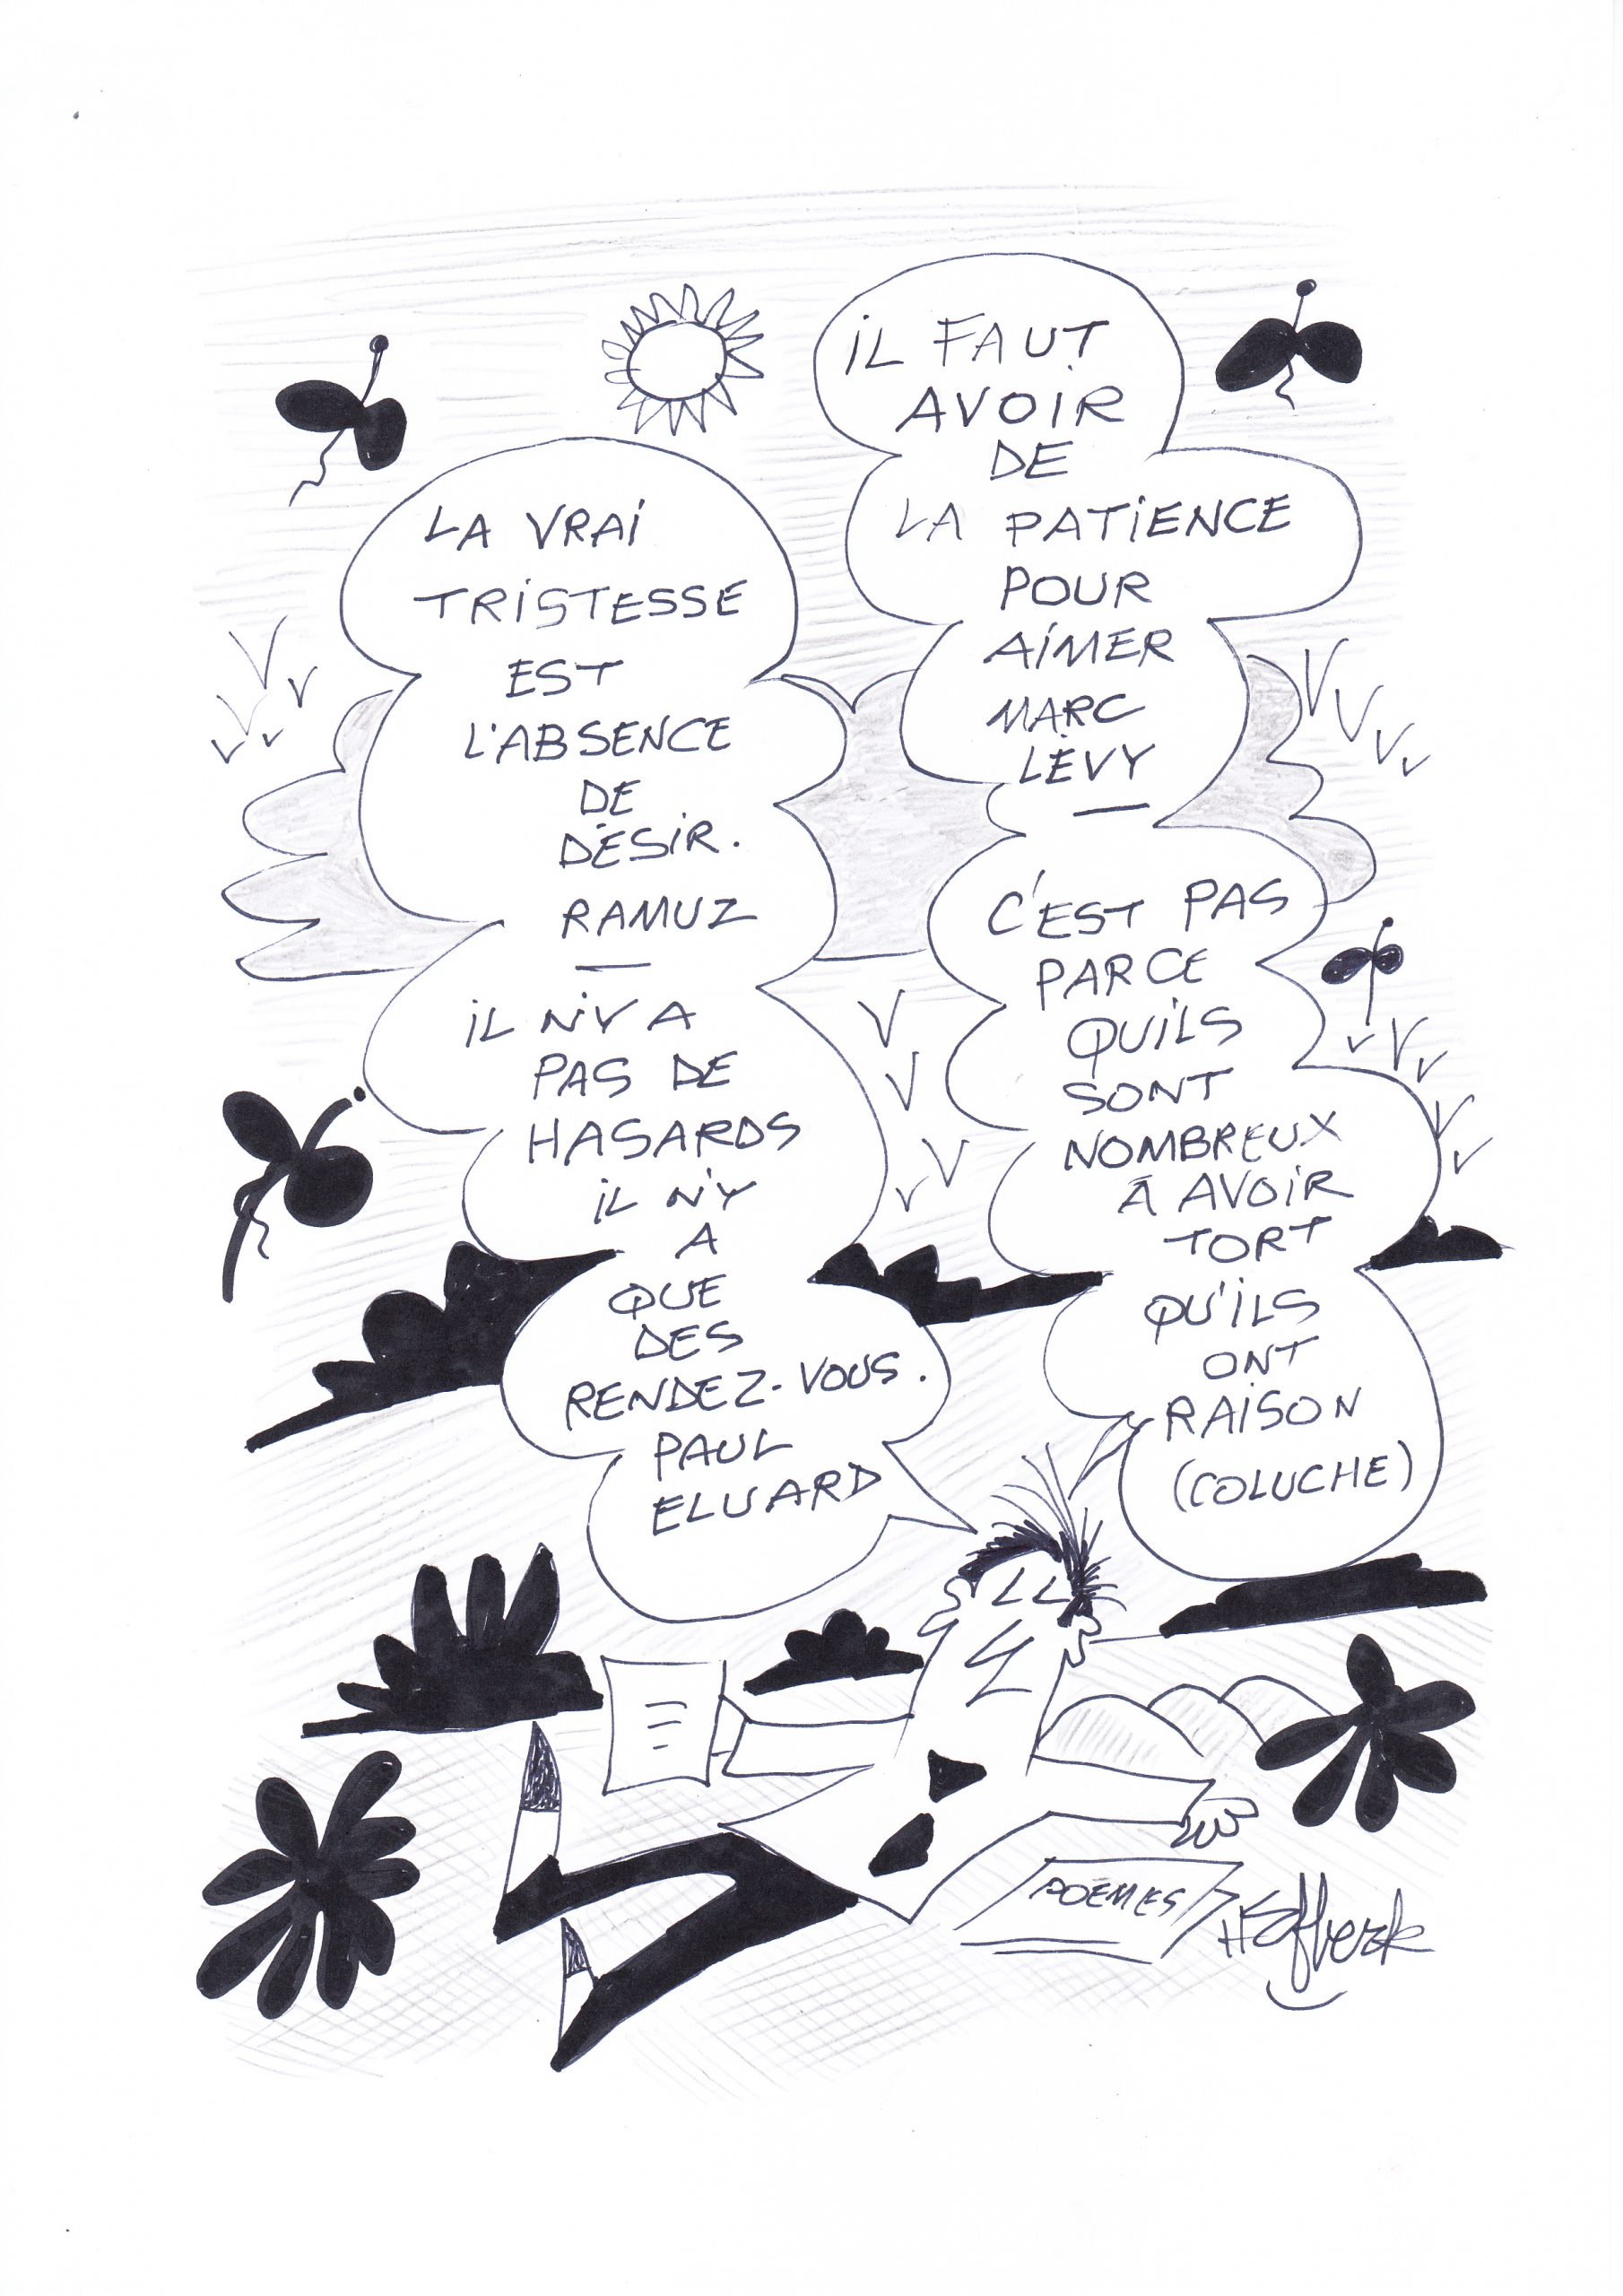 LA VRAI
TRISTESSE
EST
L'ABSENCE
DE
DÉSIR.
RAMUZ
—
IL N'Y A
PAS DE
HASARDS
IL N'Y
A
QUE
DES
RENDEZ-VOUS.
PAUL
ELUARD
IL FAUT
AVOIR
DE
LA PATIENCE
POUR
AIMER
MARC
LÉVY
—
C'EST PAS
PARCE
QU'ILS
SONT
NOMBREUX
À AVOIR
TORT
QU'ILS
ONT
RAISON
(COLUCHE)
POÈMES